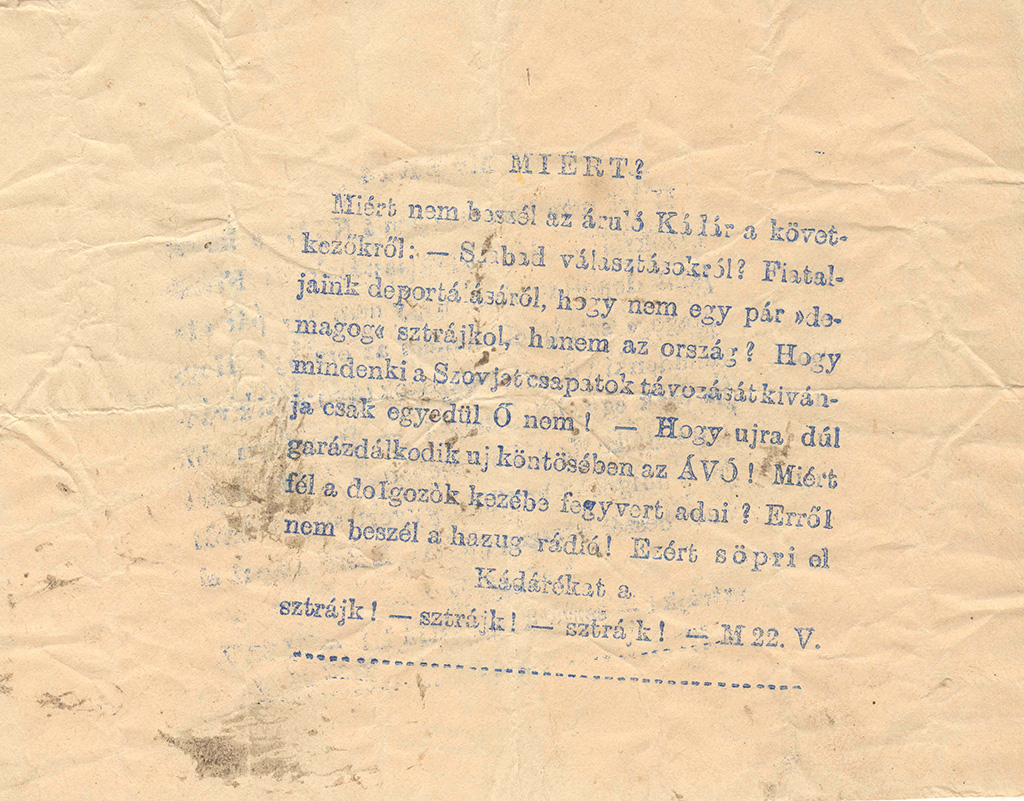 MIÉRT?
Miért nem beszél az áruló Kádár a követ-
kezőkről: — Szabad választásokról? Fiatal-
jaink deportálásáról, hogy nem egy pár »de-
magog« sztrájkol, hanem az ország? Hogy
mindenki a Szovjetcsapatok távozását kiván-
ja csak egyedül Ő nem! — Hogy ujra dúl
garázdálkodik uj köntösében az ÁVÓ! Miért
fél a dolgozòk kezébe fegyvert adni? Erről
nem beszél a hazug rádió! Ezért söpri el
Kádárékat a
sztrájk! — sztrájk! — sztrájk! — M 22. V.